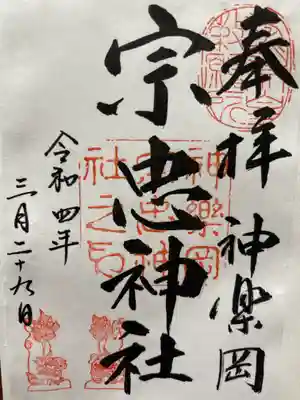 奉拝 神楽岡
宗忠神社
神楽岡
宗忠神
社之印
令和四年
三月二十九日